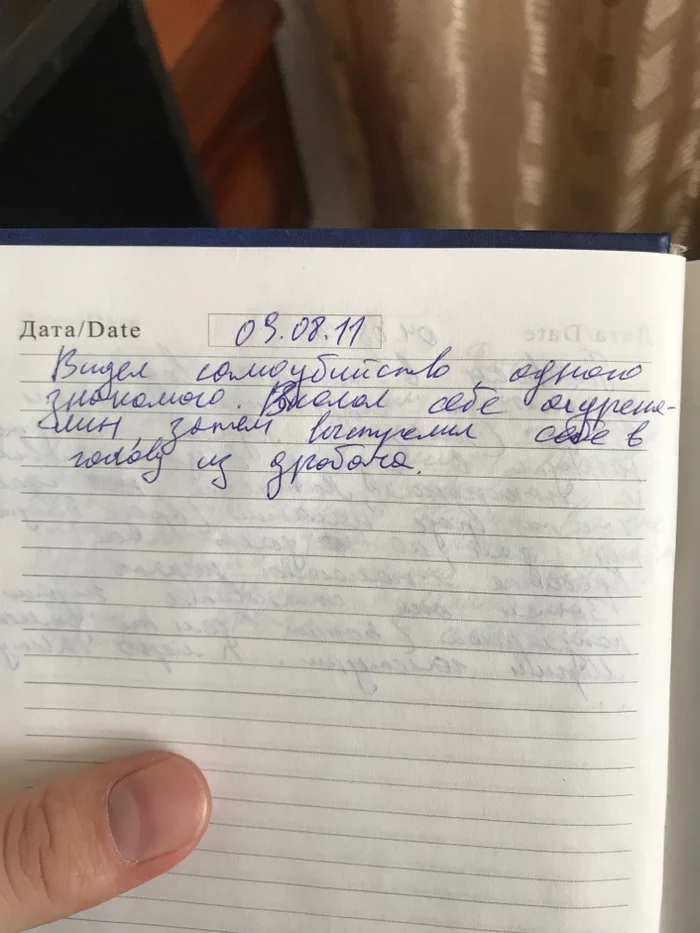 Дата/Date 09.08.11
Видел самоубийство одного
знакомого. Вколол себе адрена-
лин, затем выстрелил себе в
голову из дробаша.